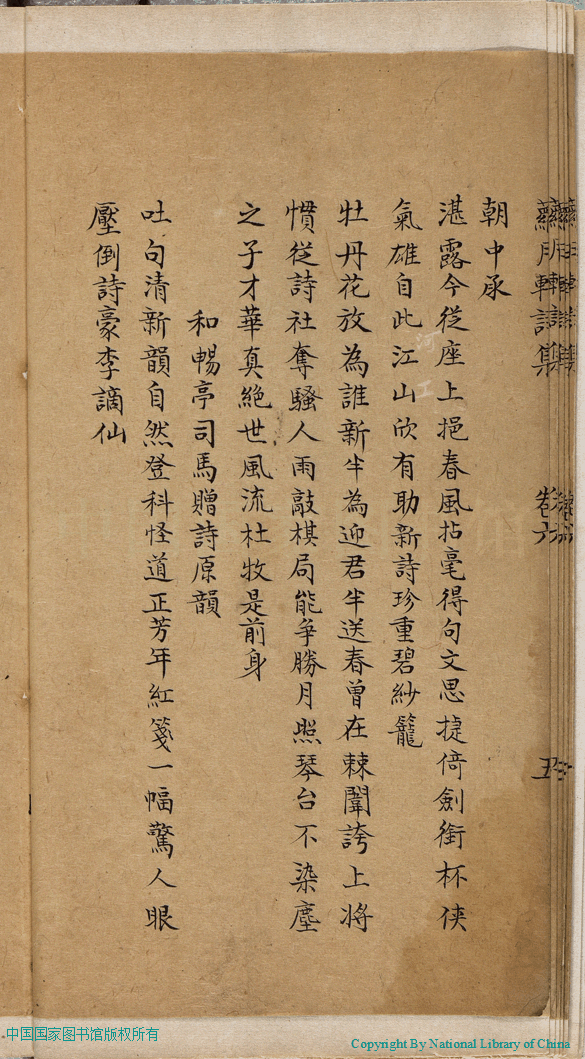 蘿月軒詩集 卷六 五
朝中承
湛露今從座上挹春風拈毫得句文思捷倚劍銜杯俠
氣雄自此江山欣有助新詩珍重碧紗籠
牡丹花放為誰新半為迎君半送春曾在棘闈誇上將
慣從詩社奪騷人雨敲棋局能爭勝月照琴台不染塵
之子才華真絕世風流杜牧是前身
和暢亭司馬贈詩原韻
吐句清新韻自然登科怪道正芳年紅箋一幅驚人眼
壓倒詩豪李謫仙
中国国家图书馆版权所有
Copyright By National Library of China